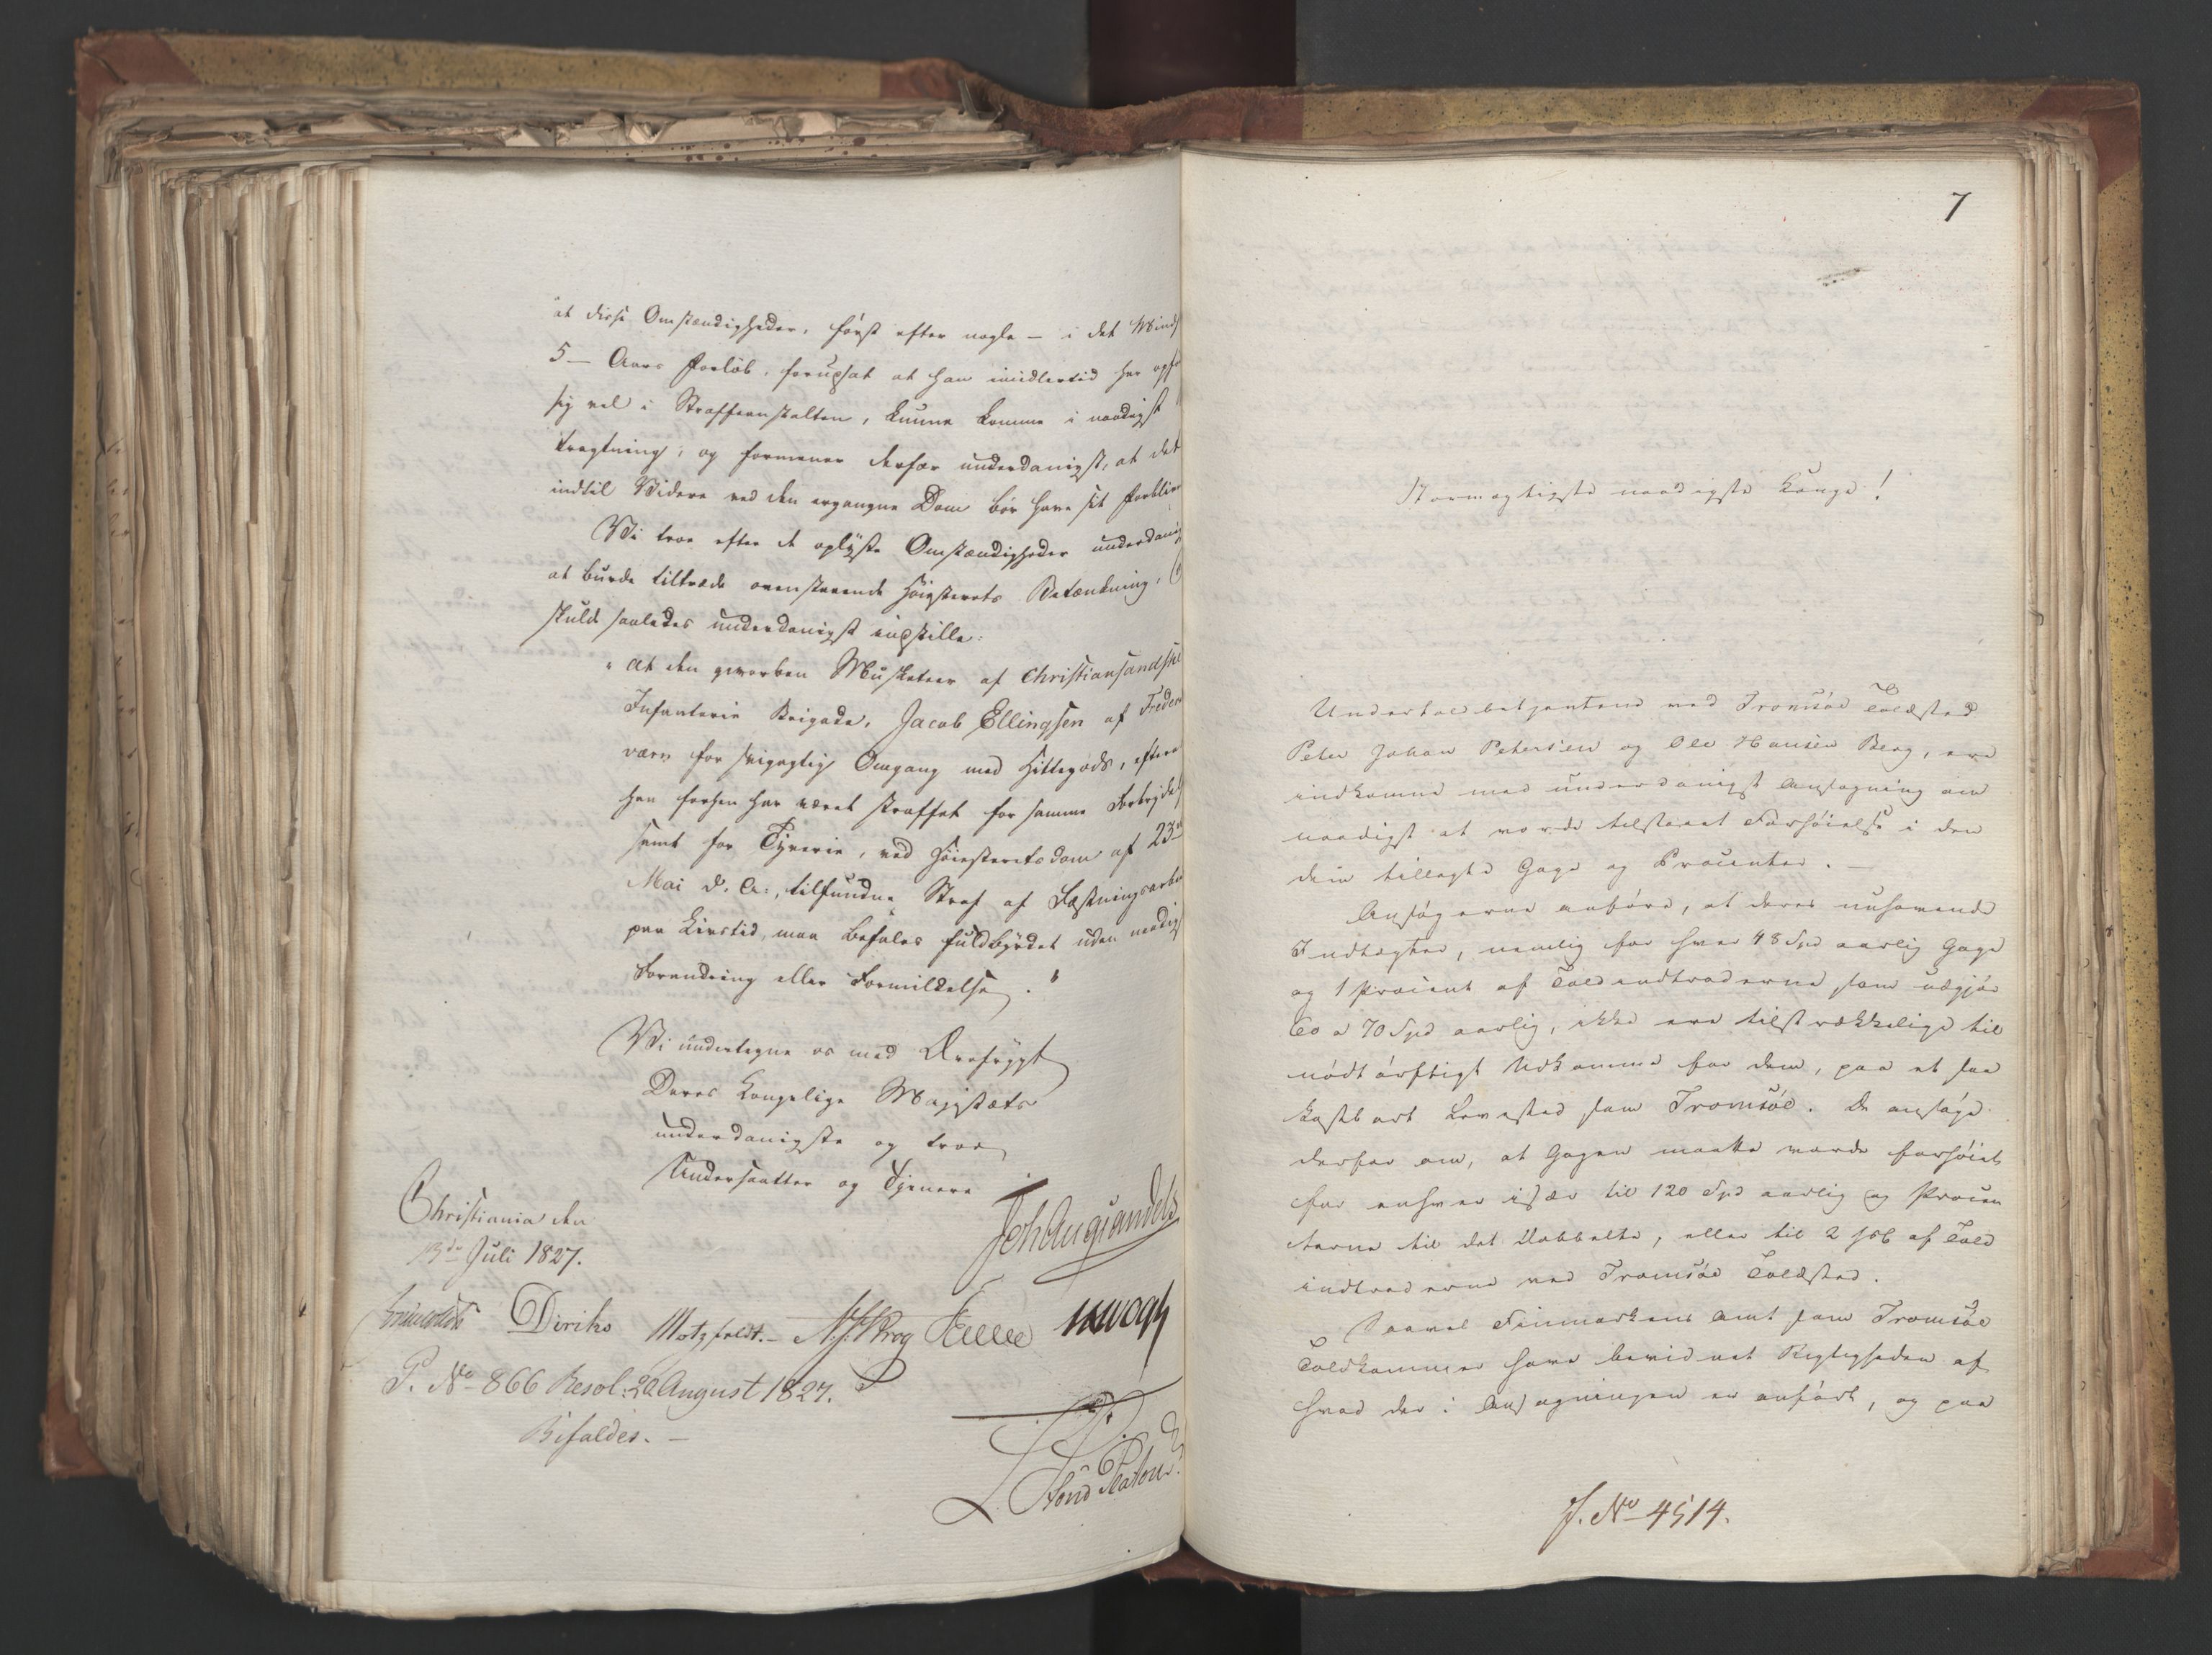 at disse Omstændigheder, først efter nogle - i det Minds
5 - Aars Forløb, forudsat at han imidlertid har opfø
sig vel i Straffeanstalten, kunne komme i naadigst
tragtning, og formener derfor underdanigst, at det
indtil Videre ved den ergangne Dom bør have sit Forbliv
Vi troe efter de oplyste Omstændigheder underdanig
at burde tiltræde ovenstaaende Høiesterets Betænkning,
skuld saaledes underdanigst indstille:
"at den gevorben Musketeer af Christiansandske
Infanterie Brigade, Jacob Ellingsen af Freder
værn for svigagtig Omgang med Hittegods, eftera
han forhen har været straffet for samme Forbrydels
samt for Tyverie, ved Høiesteretsdom af 23de
Mai d. A:, tilfundne Straf af Fæstningsarbei
paa Livstid, maa befales fuldbyrdet uden naadig
Forandring eller Formildelse."
Vi undertegne os med Ærefrygt
Deres Kongelige Majestæts
underdanigste og troe
Undersaatter og Tjenere
Christiania den
13de Juli 1827.
Diriks Motzfeldt. - N. J. Krog
P. No 866 Resol: 20 August 1827.
Bifaldes. -
7
Stormægtigste naadigste Konge!
Undertoldbetjentene ved Tromsöe Toldsted
Peter Johan Petersen og Ole Hansen Berg, ere
indkomne med underdanigst Ansøgning om
naadigst at vorde tilstaaet Forhøielse i den
dem tillagte Gage og Procenter. -
Ansøgerne anføre, at deres nuhavende
Indtægter, nemlig for hver 48 Spd aarlig Gage
og 1 Procent af Toldindtraderne, som udgjør
60 a 70 Spd aarlig, ikke ere tilstrækkelige til
nødtørftigt Udkomme for dem, paa et saa
kostbart Levested som Tromsöe. De ansøge
derfor om, at Gagen maatte vorde forhøiet
for enhver især til 120 Spd aarlig og Procen
terne til det Dobbelte, eller til 2 pCt af Told
indtraderne ved Tromsöe Toldsted.
Saavel Finmarkens Amt som Tromsöe
Toldkammer have bevidnet Rigtigheden af
hvad der i Ansøgningen er anført, og paa
J. No 4514.